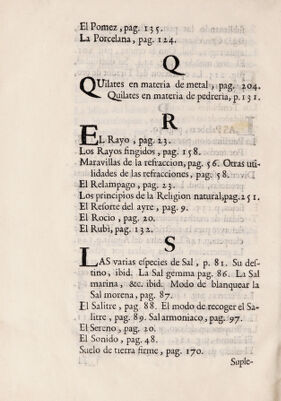 El Pomez, pag. 135.
La Porcelana, pag. 124.
Q
QUilates en materia de metal, pag. 204.
Quilates en materia de pedreria, p. 131.
R
EL Rayo, pag. 23.
Los Rayos fingidos, pag. 158.
Maravillas de la refraccion, pag. 56. Otras uti-
lidades de las refracciones, pag. 58.
El Relampago, pag. 23.
Los principios de la Religion natural, pag. 251.
El Resorte del ayre, pag. 9.
El Rocio, pag. 20.
El Rubi, pag. 132.
S
LAS varias especies de Sal, p. 81. Su des-
tino, ibid. La Sal gemma pag. 86. La Sal
marina, &c. ibid. Modo de blanquear la
Sal morena, pag. 87.
El Salitre, pag 88. El modo de recoger el Sa-
litre, pag. 89. Sal armoniaco, pag. 97.
El Sereno, pag. 20.
El Sonido, pag. 48.
Suelo de tierra firme, pag. 170.
Suple-